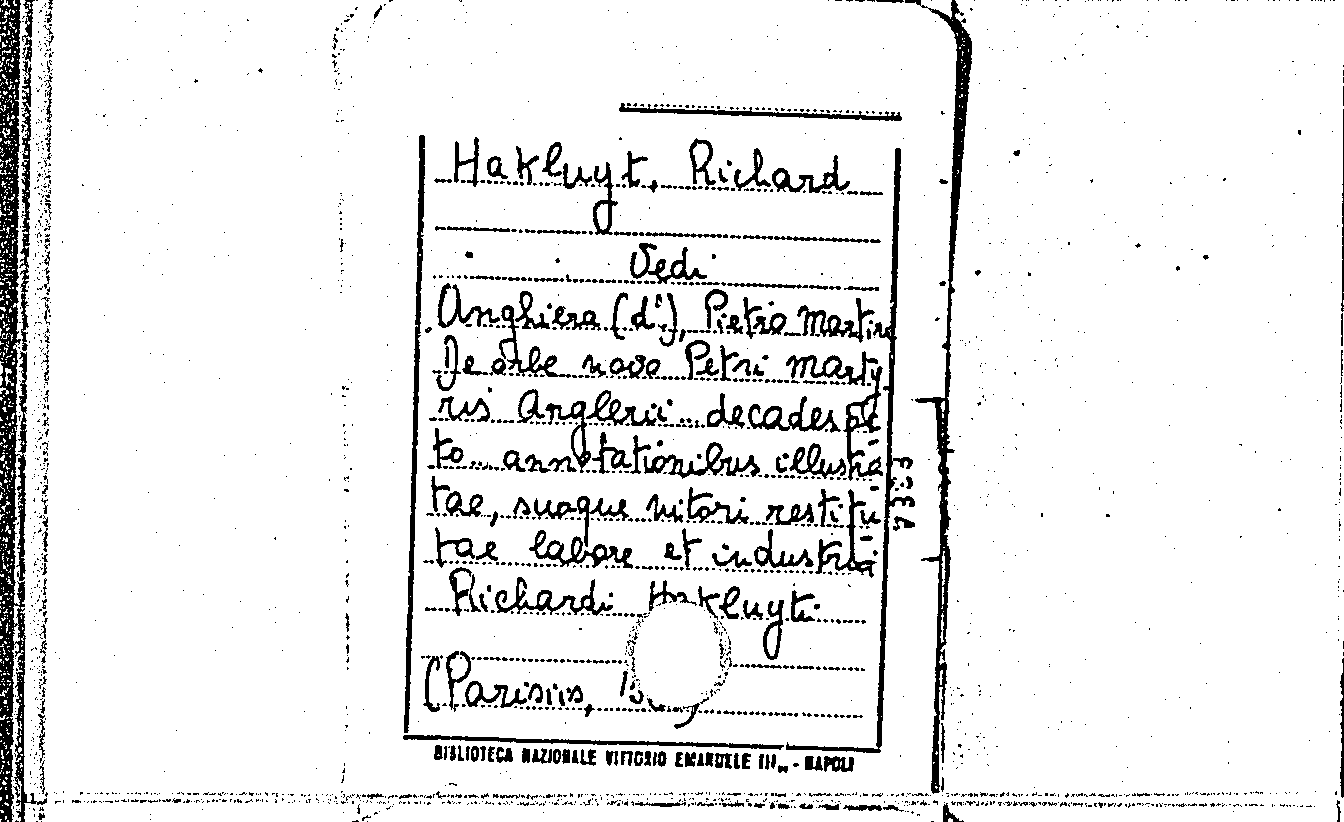 Hakluyt, Richard
Vedi
Anghiera (d'), Pietro Martire
De orbe novo Petri Marty
ris Anglerii... decades oc
to... annotationibus illustra
tae, suoque nitori restitu
tae labore et industria
Richardi Hakluyti
(Parisiis,
BIBLIOTECA NAZIONALE VITTORIO EMANUELE III - NAPOLI